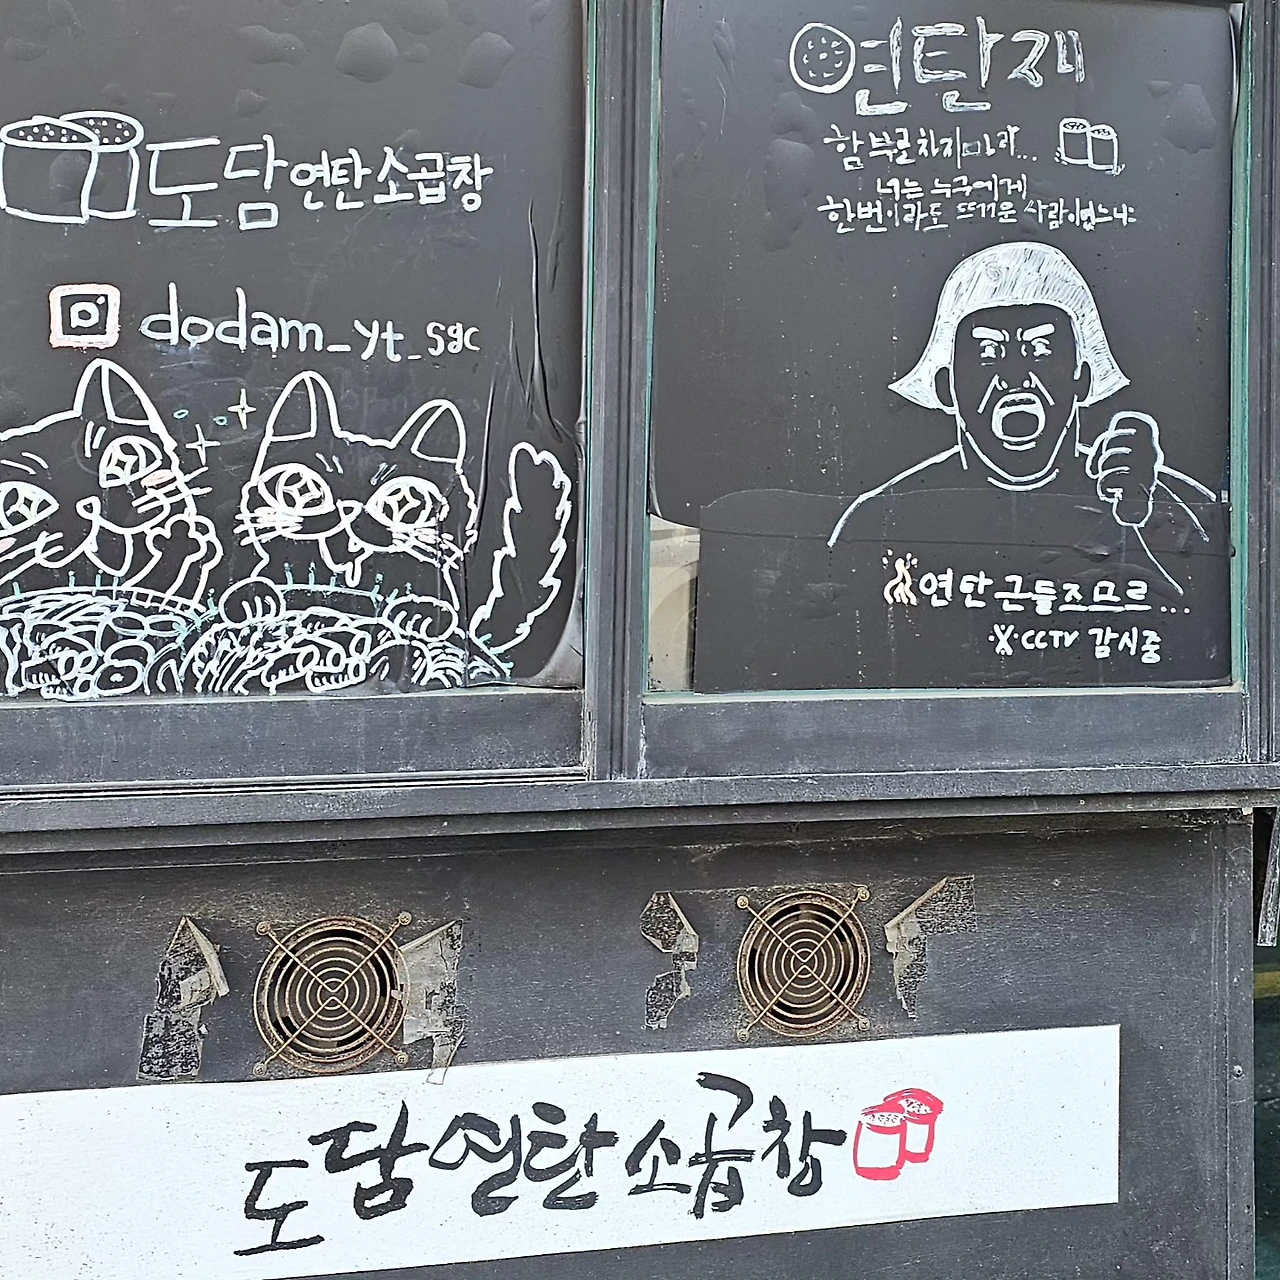 도담 연탄소곱창
dodam_yt_sgc
연탄재
함부로 차지 마라...
너는 누구에게
한번이라도 뜨거운 사람이었느냐
연탄 근들즈므르...
※CCTV 감시중
도담연탄소곱창